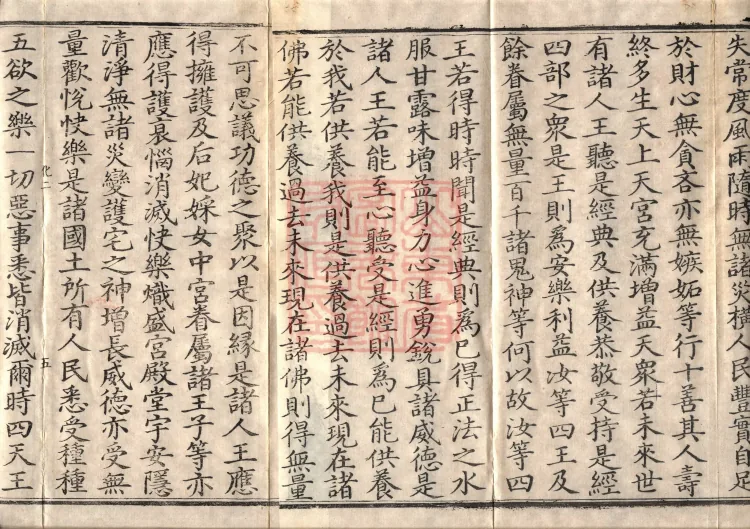 失常度風雨隨時無諸災橫人民豐實自足
於財心無貪吝亦無嫉妬等行十善其人壽
終多生天上天宮充滿增益天衆若未來世
有諸人王聽是經典及供養恭敬受持是經
四部之衆是王則為安樂利益汝等四王及
餘眷屬無量百千諸鬼神等何以故汝等四
王若得時時聞是經典則為已得正法之水
服甘露味增益身力心進勇銳具諸威德是
諸人王若能至心聽受是經則為已能供養
於我若供養我則是供養過去未來現在諸
佛若能供養過去未來現在諸佛則得無量
不可思議功德之聚以是因緣是諸人王應
得擁護及后妃婇女中宮眷屬諸王子等亦
應得護衰惱消滅快樂熾盛宮殿堂宇安隱
清淨無諸災變護宅之神增長威德亦受無
量歡悅快樂是諸國土所有人民悉受種種
化二 五
五欲之樂一切惡事悉皆消滅爾時四天王